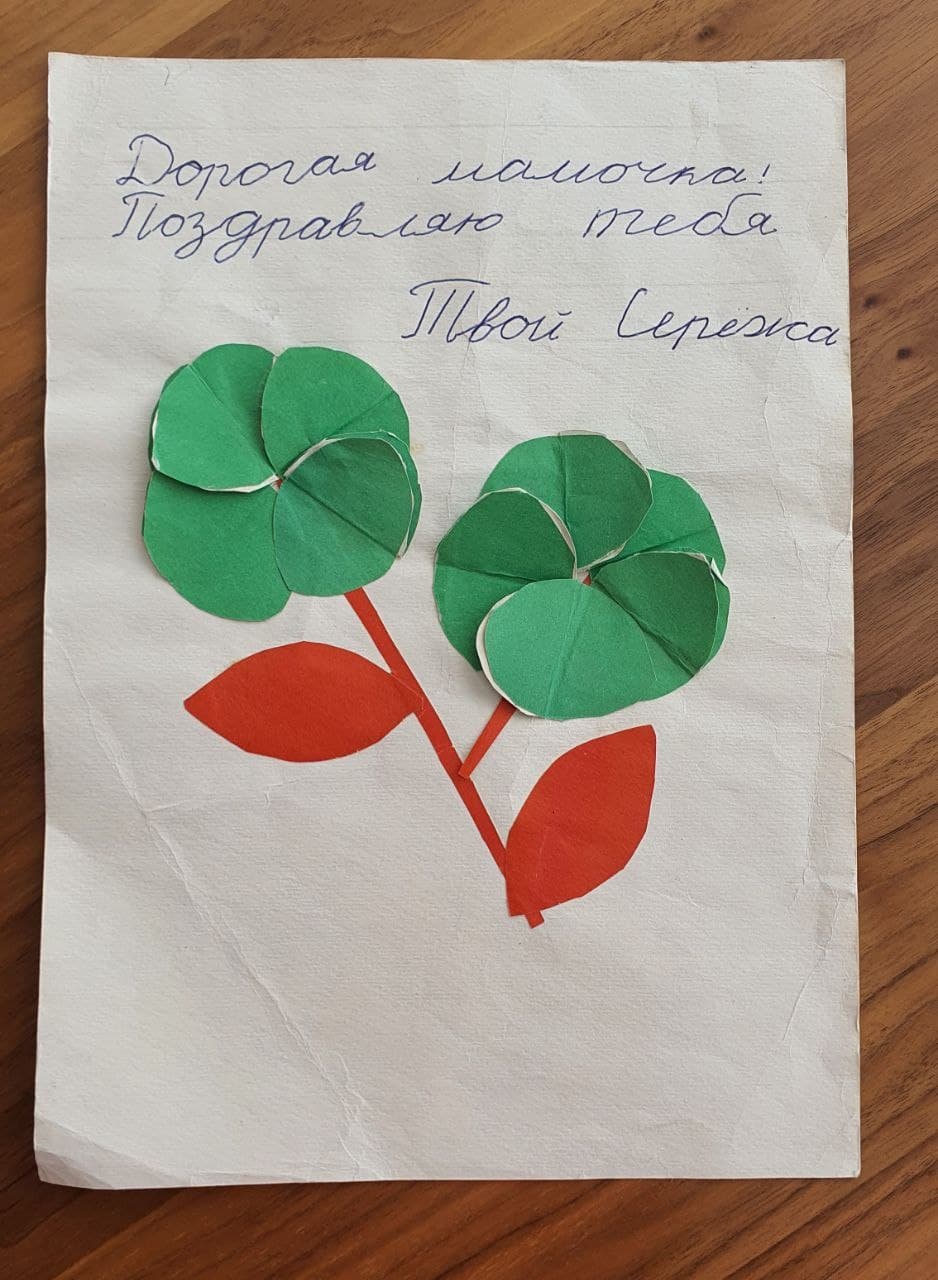 Дорогая мамочка!
Поздравляю тебя
Твой Серёжа